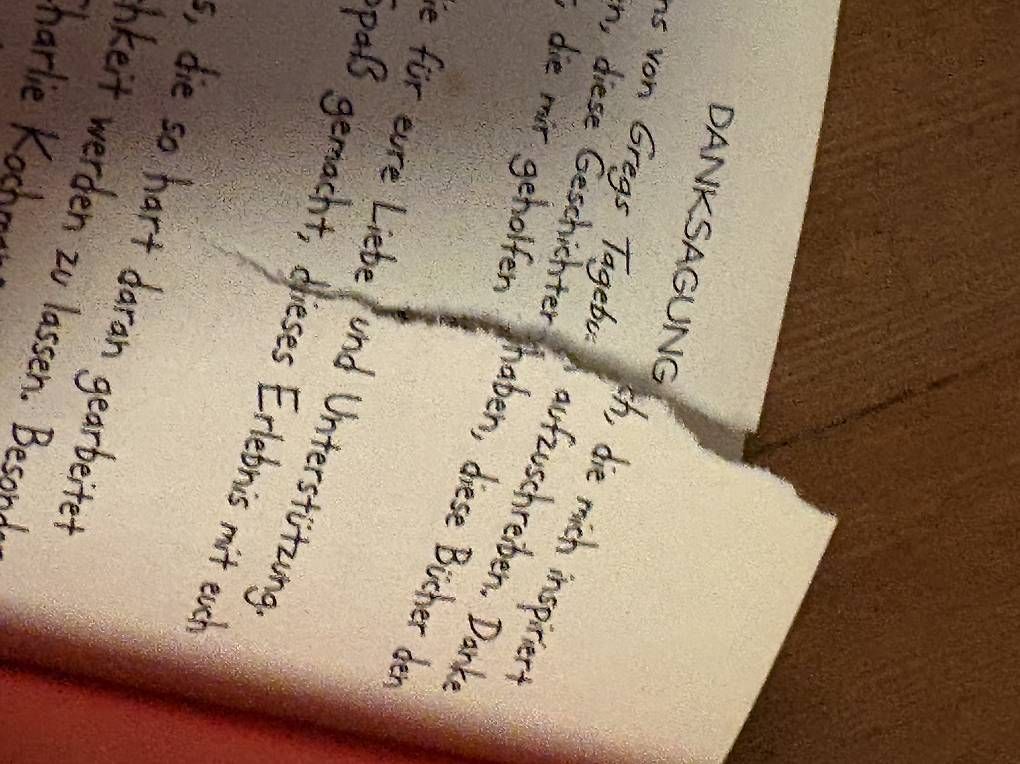 DANKSAGUNG
von Gregs Tagebuch, die mich inspiriert
diese Geschichten aufzuschreiben. Danke
die mir geholfen haben, diese Bücher den
für eure Liebe und Unterstützung.
Spaß gemacht, dieses Erlebnis mit euch
die so hart daran gearbeitet
werden zu lassen. Besonder